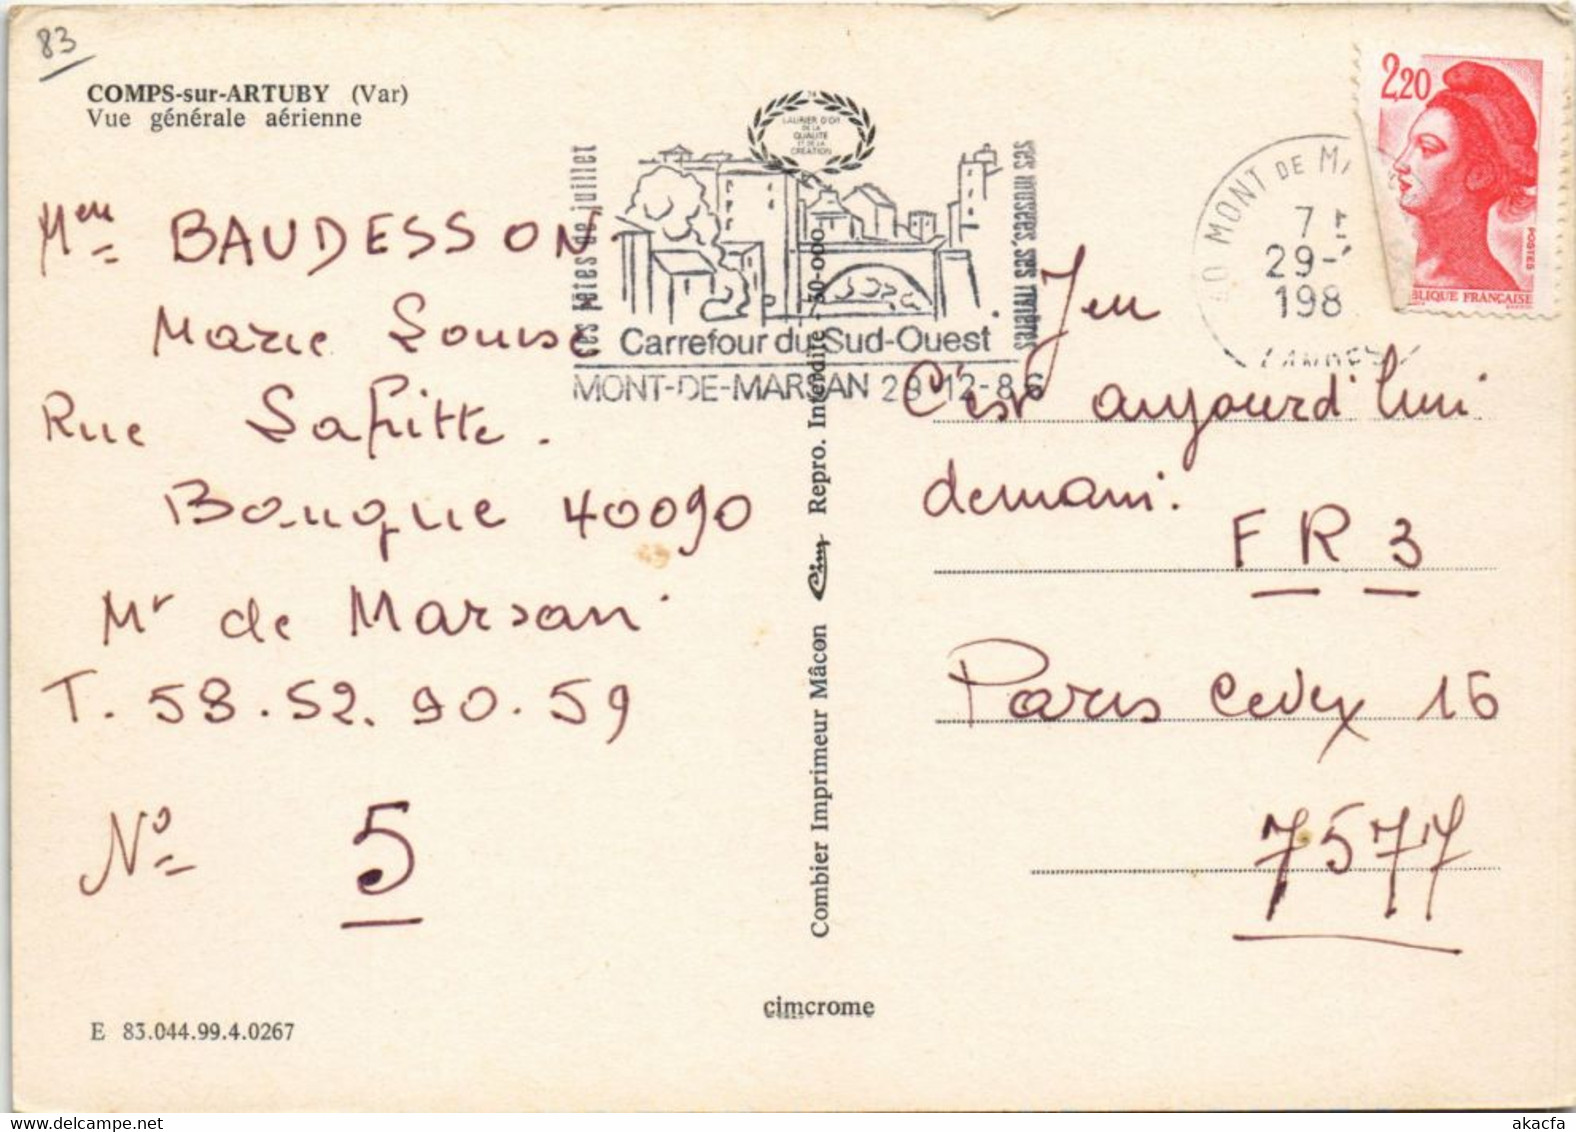 83
COMPS-sur-ARTUBY (Var)
Vue générale aérienne
LAURIER D'OR
DE LA
QUALITE
ET DE LA
CREATION
ses fêtes de juillet
ses musées, ses rivières
Carrefour du Sud-Ouest
MONT-DE-MARSAN 29-12-86
40 MONT DE MA
7 H
29-1
198
LANDES
2,20
POSTES
BLIQUE FRANÇAISE
Mme BAUDESSON
Marie Louise
Rue Lafitte.
Bougue 40090
Mt de Marsan
T. 58.52.90.59
No 5
E 83.044.99.4.0267
Combier Imprimeur Mâcon Cim Repro. Interdite 30-000
cimcrome
Jeu
C'est aujourd'hui
demain.
FR3
Paris Cedex 16
7577
www.akacfa.com
akacfa